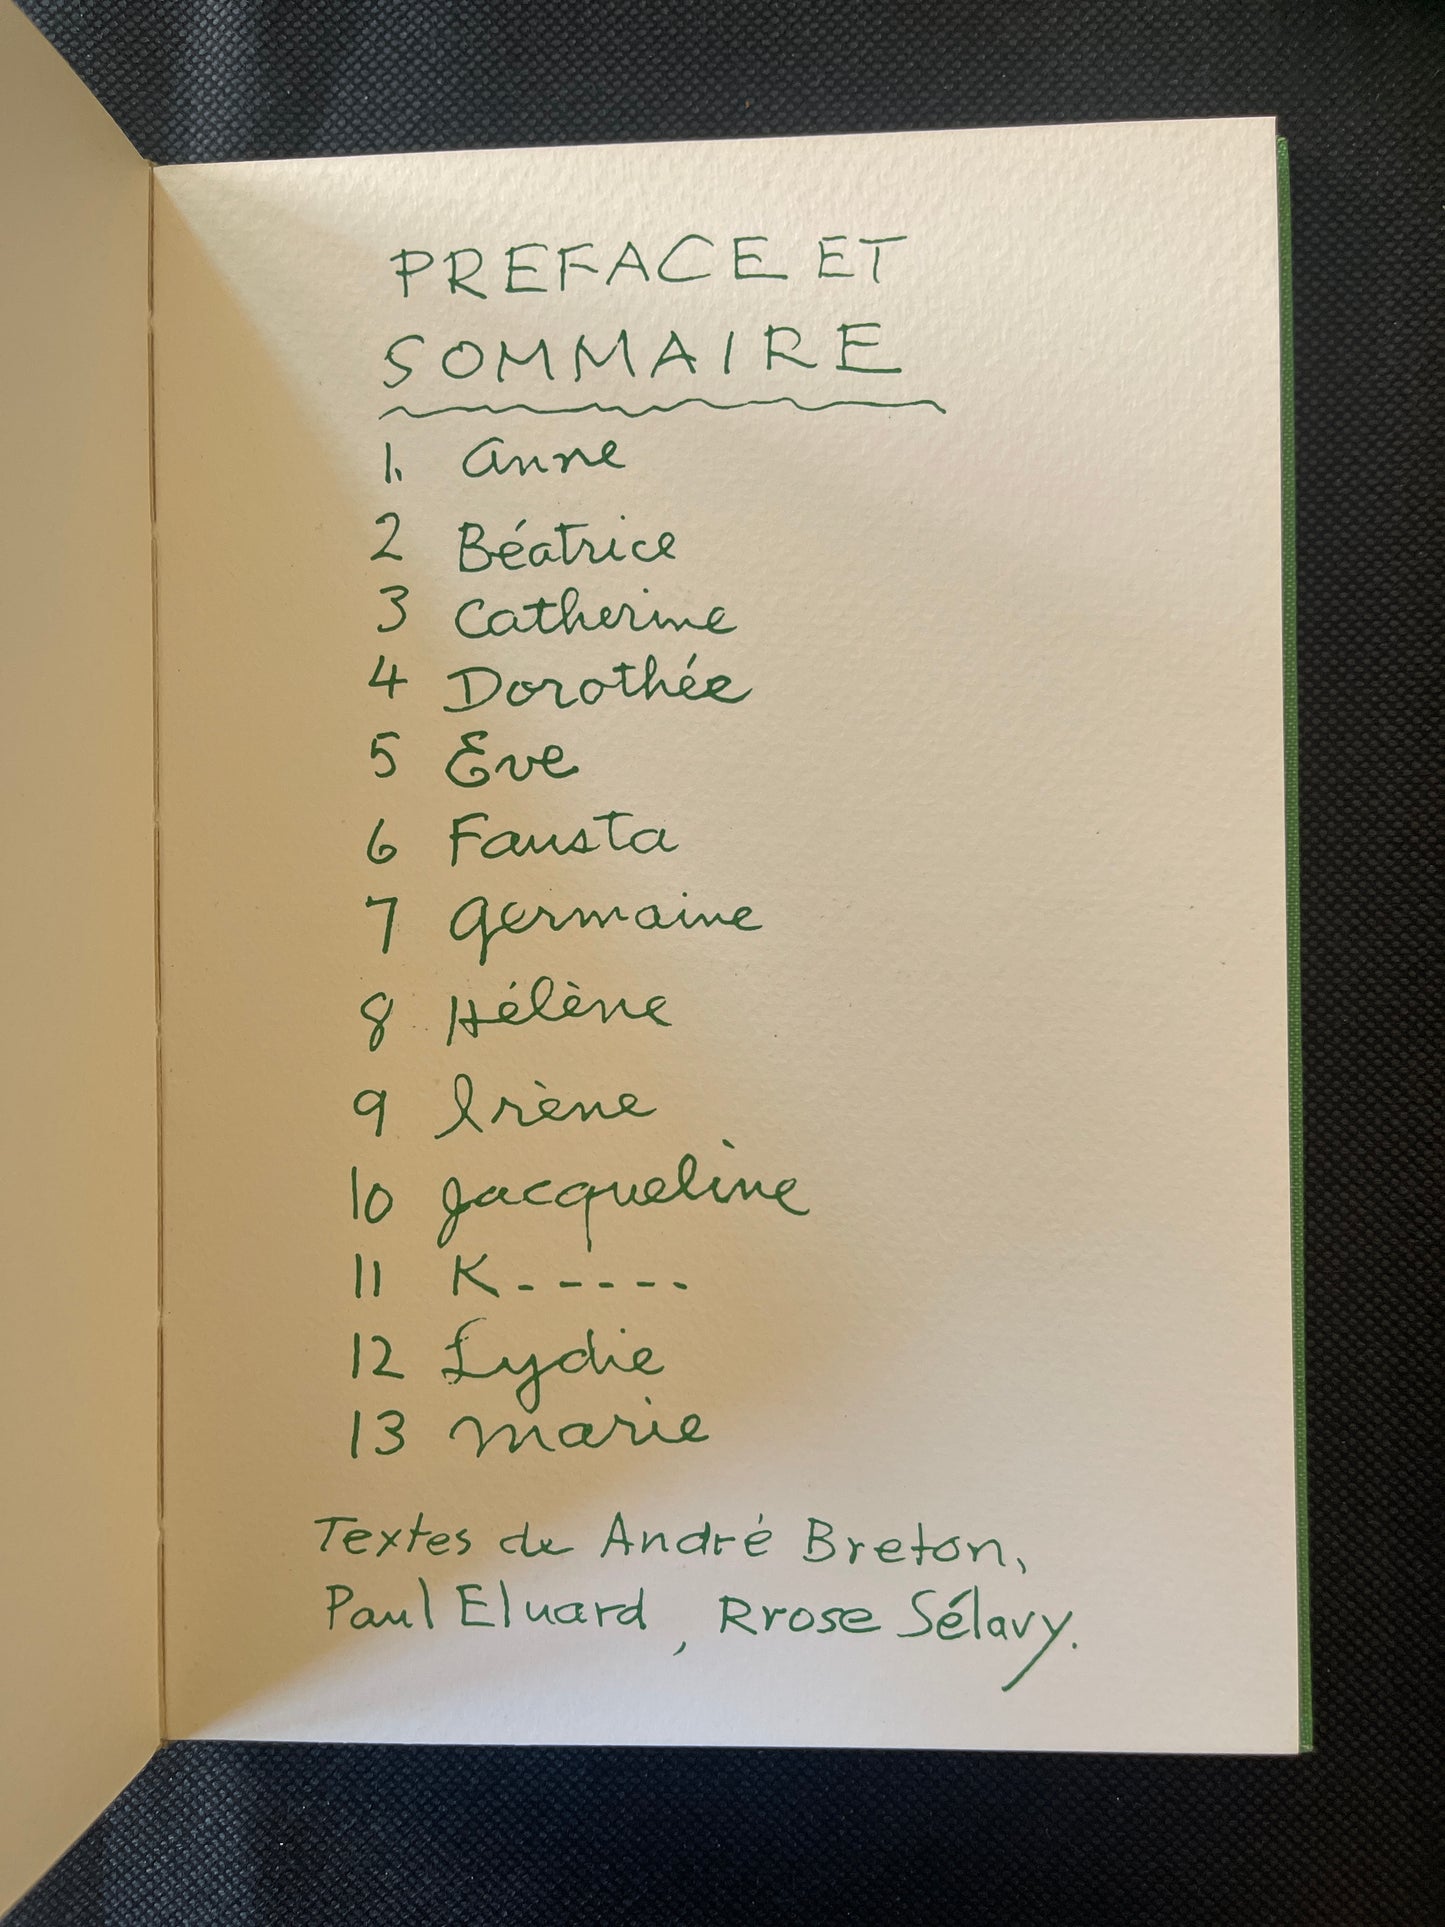 PREFACE ET
SOMMAIRE
1. Anne
2 Béatrice
3 Catherine
4 Dorothée
5 Eve
6 Fausta
7 Germaine
8 Hélène
9 Irène
10 Jacqueline
11 K-----
12 Lydie
13 Marie
Textes de André Breton,
Paul Eluard, Rrose Sélavy.